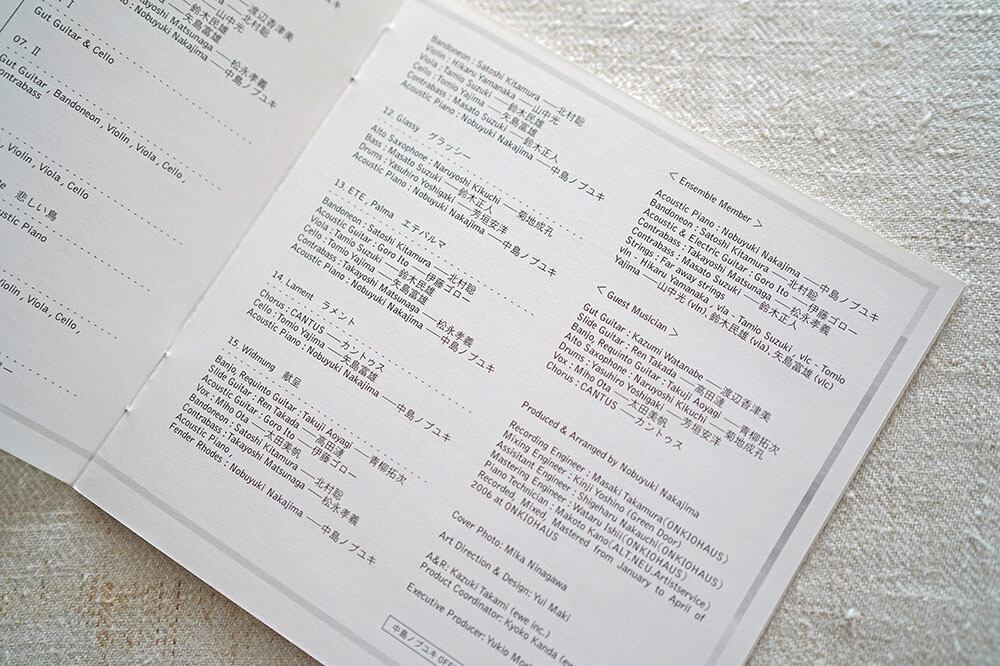 渡辺香津美
北村聡
山中光
鈴木民雄
矢島富雄
Takayoshi Matsunaga ―― 松永孝義
Nobuyuki Nakajima ―― 中島ノブユキ
Gut Guitar & Cello
07. II
Gut Guitar, Bandoneon, Violin, Viola, Cello,
Contrabass
Violin, Viola, Cello
悲しい鳥
Piano
Violin, Viola, Cello,
Bandoneon : Satoshi Kitamura ―― 北村聡
Violin : Hikaru Yamanaka ―― 山中光
Viola : Tamio Suzuki ―― 鈴木民雄
Cello : Tomio Yajima ―― 矢島富雄
Contrabass : Masato Suzuki ―― 鈴木正人
Acoustic Piano : Nobuyuki Nakajima ―― 中島ノブユキ
12. Glassy グラッシー
Alto Saxophone : Naruyoshi Kikuchi ―― 菊地成孔
Bass : Masato Suzuki ―― 鈴木正人
Drums : Yasuhiro Yoshigaki ―― 芳垣安洋
Acoustic Piano : Nobuyuki Nakajima ―― 中島ノブユキ
13. ETE, Palma エテパルマ
Bandoneon : Satoshi Kitamura ―― 北村聡
Acoustic Guitar : Goro Ito ―― 伊藤ゴロー
Viola : Tamio Suzuki ―― 鈴木民雄
Cello : Tomio Yajima ―― 矢島富雄
Contrabass : Takayoshi Matsunaga ―― 松永孝義
Acoustic Piano : Nobuyuki Nakajima ―― 中島ノブユキ
14. Lament ラメント
Chorus : CANTUS ―― カントゥス
Cello : Tomio Yajima ―― 矢島富雄
Acoustic Piano : Nobuyuki Nakajima ―― 中島ノブユキ
15. Widmung 献呈
Banjo, Requinto Guitar : Takuji Aoyagi ―― 青柳拓次
Slide Guitar : Ren Takada ―― 高田漣
Acoustic Guitar : Goro Ito ―― 伊藤ゴロー
Vox : Miho Ota ―― 太田美帆
Bandoneon : Satoshi Kitamura ―― 北村聡
Contrabass : Takayoshi Matsunaga ―― 松永孝義
Acoustic Piano,
Fender Rhodes : Nobuyuki Nakajima ―― 中島ノブユキ
< Ensemble Member >
Acoustic Piano : Nobuyuki Nakajima ―― 中島ノブユキ
Bandoneon : Satoshi Kitamura ―― 北村聡
Acoustic & Electric Guitar : Goro Ito ―― 伊藤ゴロー
Contrabass : Takayoshi Matsunaga ―― 松永孝義
Contrabass : Masato Suzuki ―― 鈴木正人
Strings : Far away strings.
vln - Hikaru Yamanaka, vla - Tamio Suzuki, vlc - Tomio
Yajima ―― 山中光 (vln), 鈴木民雄 (vla), 矢島富雄 (vlc)
< Guest Musician >
Gut Guitar : Kazumi Watanabe ―― 渡辺香津美
Slide Guitar : Ren Takada ―― 高田漣
Banjo, Requinto Guitar : Takuji Aoyagi ―― 青柳拓次
Alto Saxophone : Naruyoshi Kikuchi ―― 菊地成孔
Drums : Yasuhiro Yoshigaki ―― 芳垣安洋
Vox : Miho Ota ―― 太田美帆
Chorus : CANTUS ―― カントゥス
Produced & Arranged by Nobuyuki Nakajima
Recording Engineer : Masaki Takamura (ONKIOHAUS)
Mixing Engineer : Kinji Yoshino (Green Door)
Assisitant Engineer : Shigeharu Nakauchi (ONKIOHAUS)
Mastering Engineer : Wataru Ishii (ONKIOHAUS)
Piano Technician : Makoto Kano (ALT.NEU.Artistservice)
Recorded, Mixed, Mastered from January to April of
2006 at ONKIOHAUS
Cover Photo: Mika Ninagawa
Art Direction & Design: Yui Maki
A&R: Kazuki Takami (ewe inc.)
Product Coordinator: Kyoko Kanda
Executive Producer: Yukio
中島ノブユキ